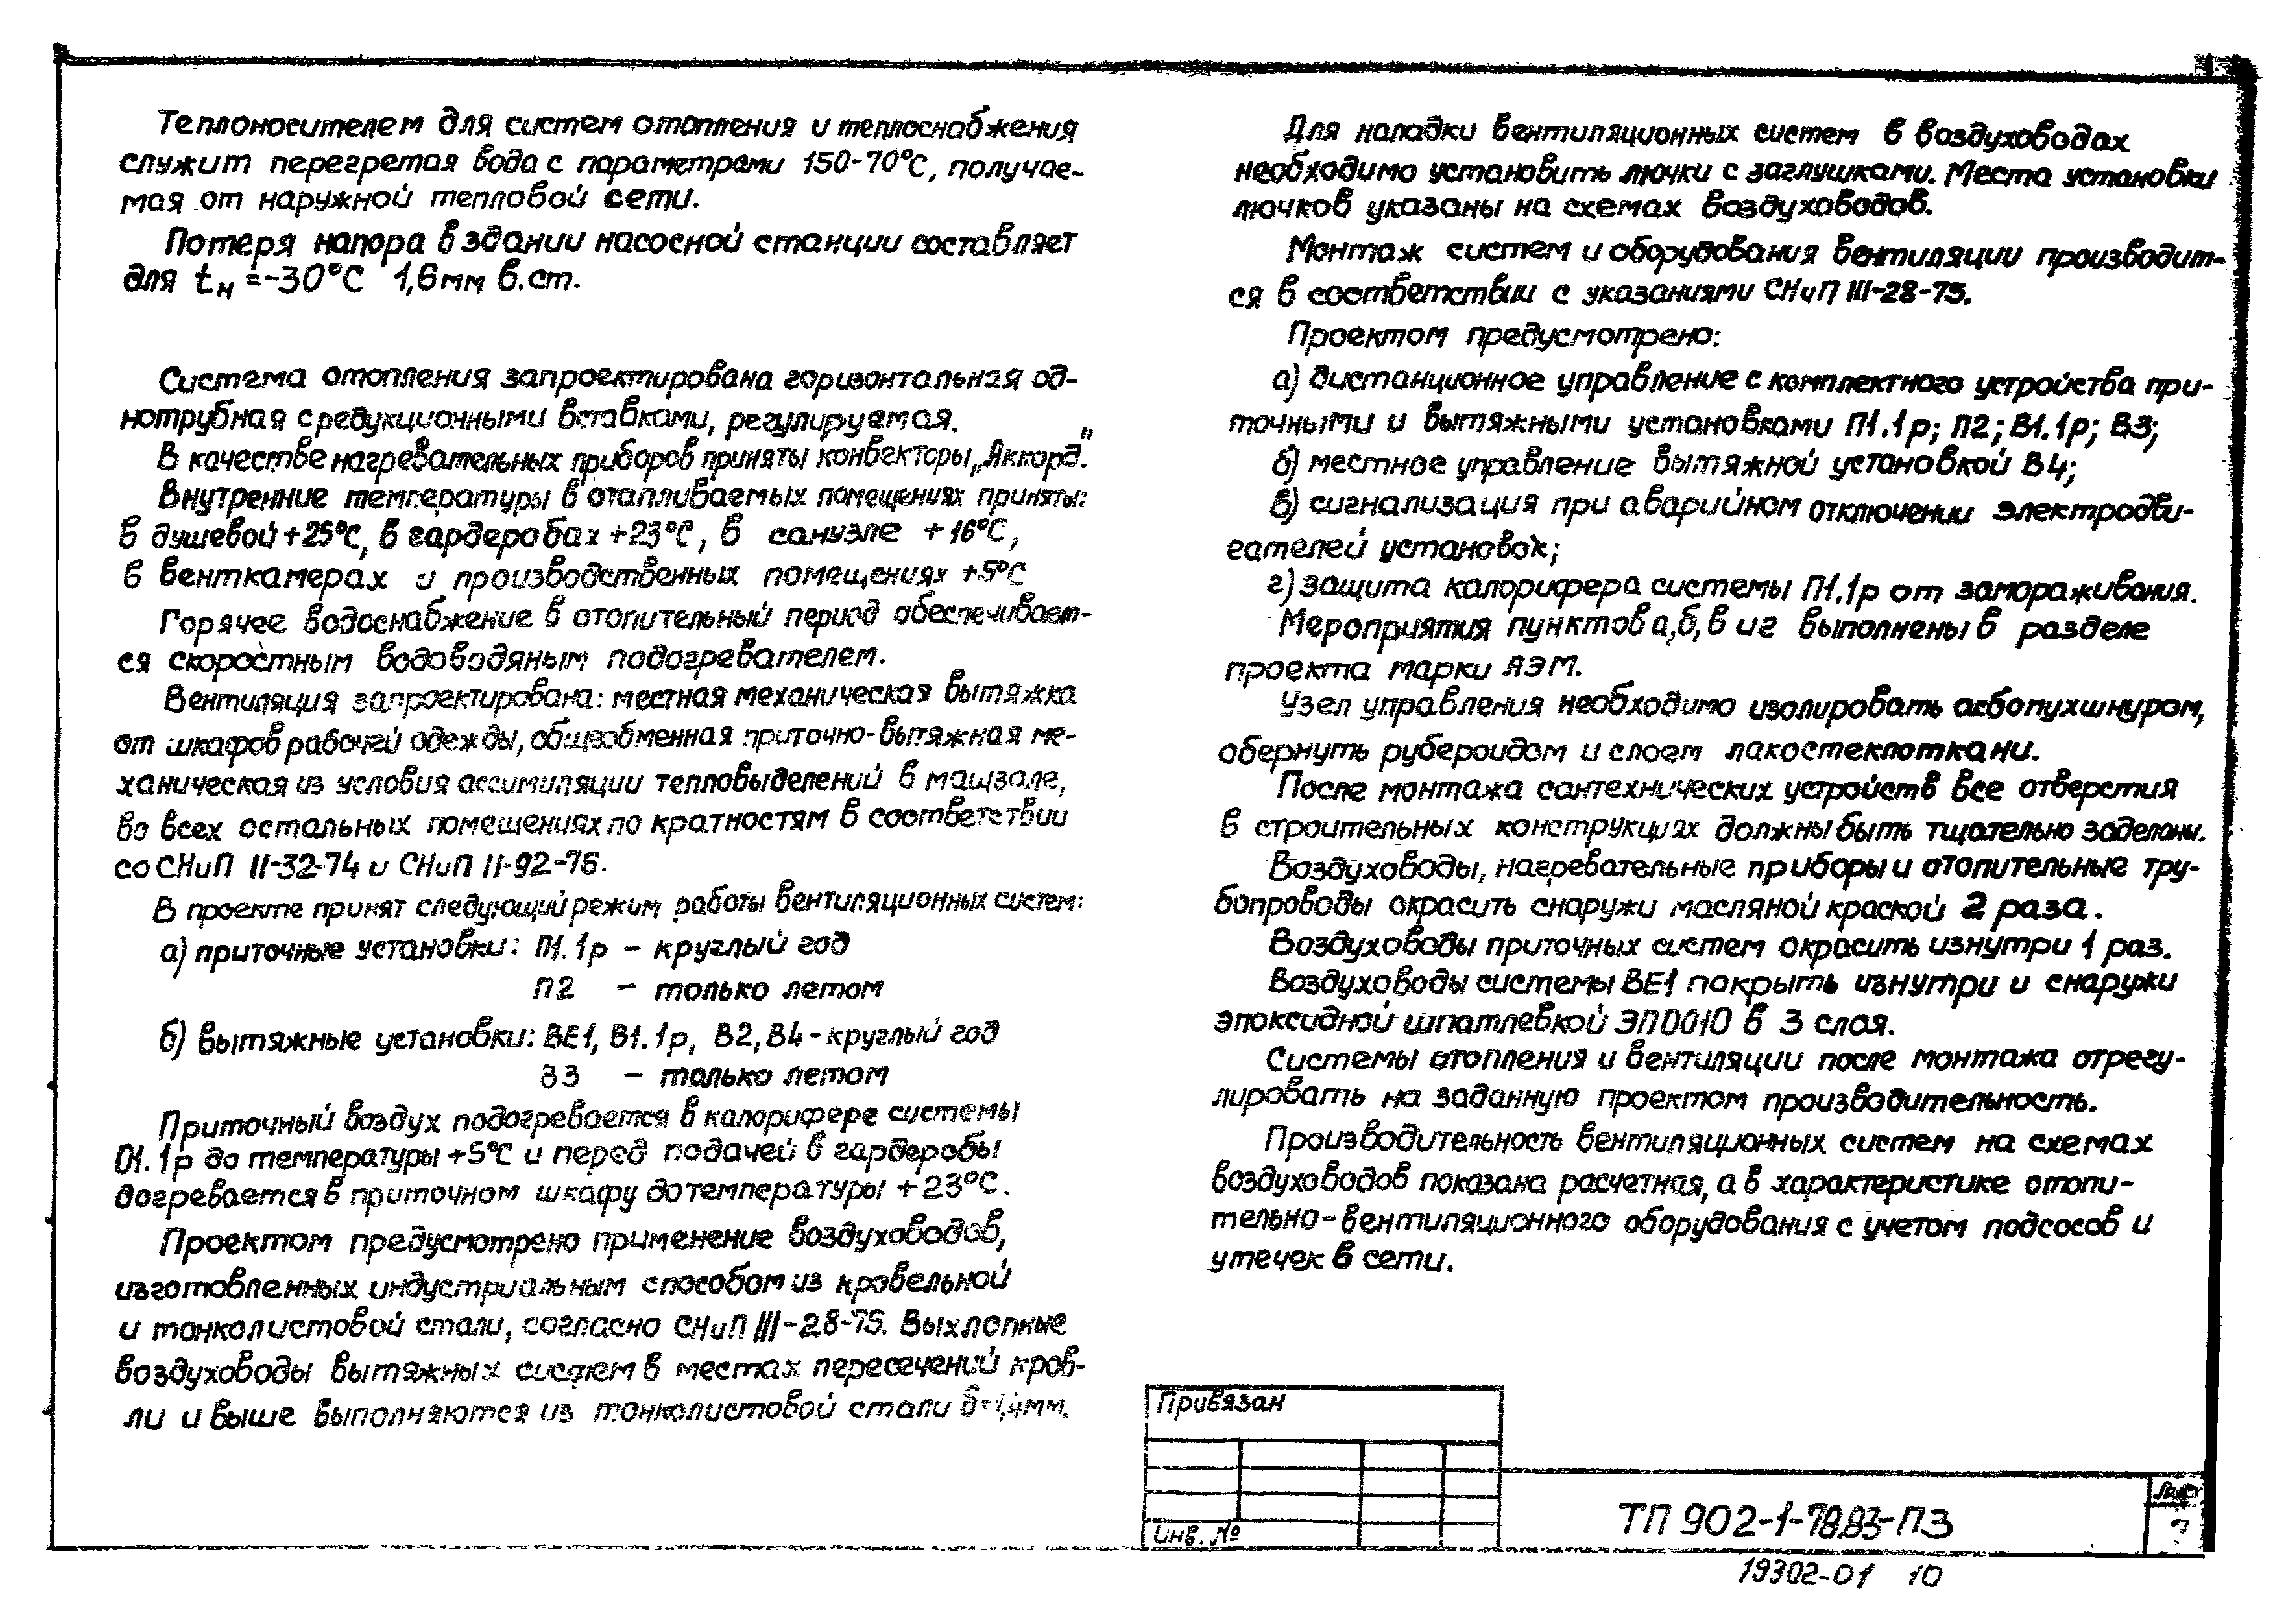 Теплоносителем для систем отопления и теплоснабжения
служит перегретая вода с параметрами 150-70°С, получае-
мая от наружной тепловой сети.
Потеря напора в здании насосной станции составляет
для tн =-30°С 1,6 мм в.ст.
Система отопления запроектирована горизонтальная од-
нотрубная с редукционными вставками, регулируемая.
В качестве нагревательных приборов приняты конвекторы „Аккорд".
Внутренние температуры в отапливаемых помещениях приняты:
в душевой +25°С, в гардеробах +23°С, в санузле +16°С,
в венткамерах и производственных помещениях +5°С
Горячее водоснабжение в отопительный период обеспечивает-
ся скоростным водоводяным подогревателем.
Вентиляция запроектирована: местная механическая вытяжка
от шкафов рабочей одежды, общеобменная приточно-вытяжная ме-
ханическая из условия ассимиляции тепловыделений в машзале,
во всех остальных помещениях по кратностям в соответствии
со СНиП II-32-74 и СНиП II-92-76.
В проекте принят следующий режим работы вентиляционных систем:
а) приточные установки: П1.1р – круглый год
П2 – только летом
б) вытяжные установки: ВЕ1, В1.1р, В2, В4 - круглый год
В3 – только летом
Приточный воздух подогревается в калорифере системы
П1.1р до температуры +5°С и перед подачей в гардеробы
догревается в приточном шкафу до температуры +23°С.
Проектом предусмотрено применение воздуховодов,
изготовленных индустриальным способом из кровельной
и тонколистовой стали, согласно СНиП III-28-75. Выхлопные
воздуховоды вытяжных систем в местах пересечений кров-
ли и выше выполняются из тонколистовой стали δ=1,4мм.
Для наладки вентиляционных систем в воздуховодах
необходимо установить лючки с заглушками. Места установки
лючков указаны на схемах воздуховодов.
Монтаж систем и оборудования вентиляции производит-
ся в соответствии с указаниями СНиП III-28-75.
Проектом предусмотрено:
а) дистанционное управление с комплектного устройства при-
точными и вытяжными установками П1.1р; П2; В1.1р; В3;
б) местное управление вытяжной установкой В4;
в) сигнализация при аварийном отключении электродви-
гателей установок;
г) защита калорифера системы П1.1р от замораживания.
Мероприятия пунктов а, б, в и г выполнены в разделе
проекта марки АЭМ.
Узел управления необходимо изолировать асбопухшнуром,
обернуть рубероидом и слоем лакостеклоткани.
После монтажа сантехнических устройств все отверстия
в строительных конструкциях должны быть тщательно заделаны.
Воздуховоды, нагревательные приборы и отопительные тру-
бопроводы окрасить снаружи масляной краской 2 раза.
Воздуховоды приточных систем окрасить изнутри 1 раз.
Воздуховоды системы ВЕ1 покрыть изнутри и снаружи
эпоксидной шпатлевкой ЭП0010 в 3 слоя.
Системы отопления и вентиляции после монтажа отрегу-
лировать на заданную проектом производительность.
Производительность вентиляционных систем на схемах
воздуховодов показана расчетная, а в характеристике отопи-
тельно-вентиляционного оборудования с учетом подсосов и
утечек в сети.
Привязан
Инв. №
ТП 902-1-78.83-ПЗ
Лист
19302-01 10